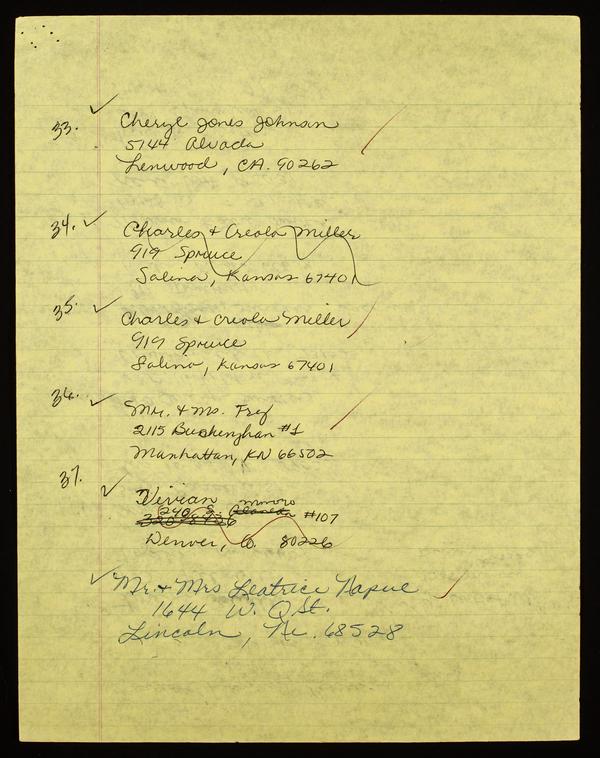 33. Cheryl Jones Johnson
5144 Alvada
Lenwood, CA. 90262
34. Charles & Creola Miller
919 Spruce
Salina, Kansas 67401
35. Charles & Creola Miller
919 Spruce
Salina, Kansas 67401
36. Mr. & Ms. Frey
2115 Buckingham #1
Manhattan, KN 66502
37. Vivian
240 S. Monroe #107
Denver, Co. 80226
Mr. & Mrs Leatrice Napue
1644 W. Q St.
Lincoln, Ne. 68528